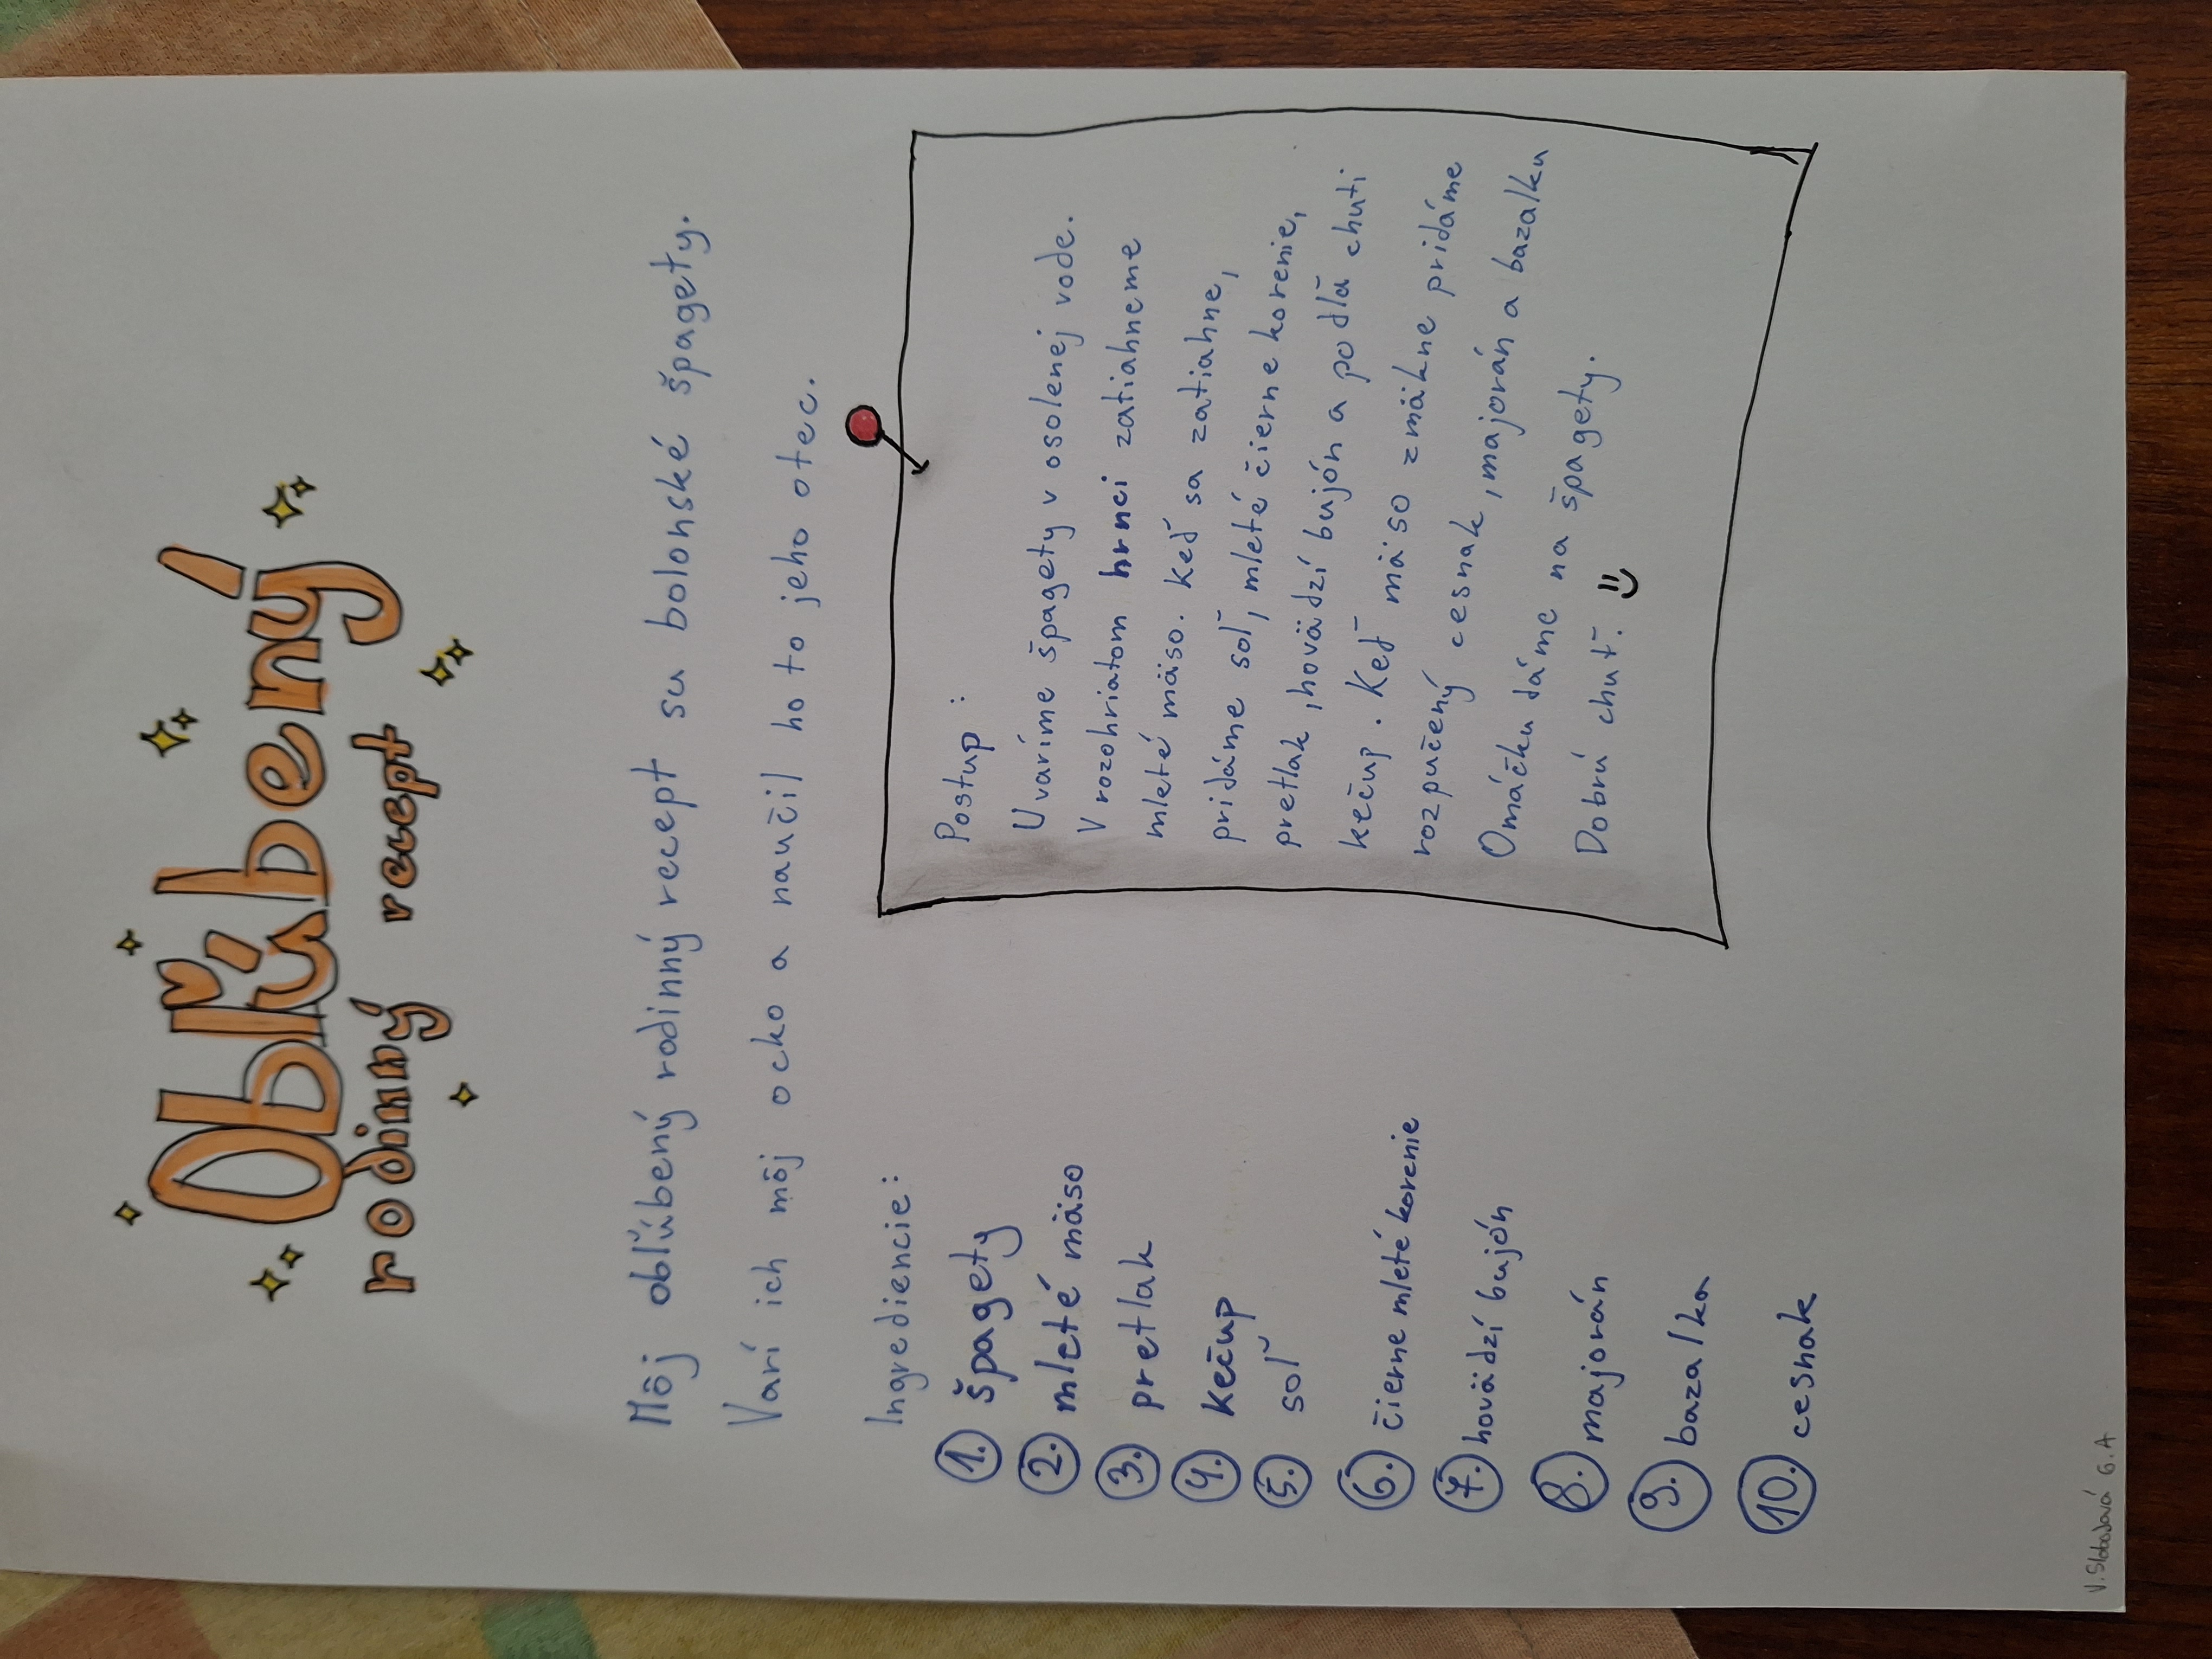 Obľúbený
rodinný recept
Môj obľúbený rodinný recept su bolonské špagety.
Varí ich môj ocko a naučil ho to jeho otec.
Ingrediencie:
1. špagety
2. mleté mäso
3. pretlak
4. kečup
5. soľ
6. čierne mleté korenie
7. hovädzí bujón
8. majorán
9. bazalka
10. cesnak
Postup:
Uvaríme špagety v osolenej vode.
V rozohriatom hrnci zatiahneme
mleté mäso. Keď sa zatiahne,
pridáme soľ, mleté čierne korenie,
pretlak, hovädzí bujón a podlā chuti
kečup. Keď mäso zmäkne pridáme
rozpučený cesnak, majorán a bazalku
Omáčku dáme na špagety.
Dobrú chuť.
V. Slobodová 6. A